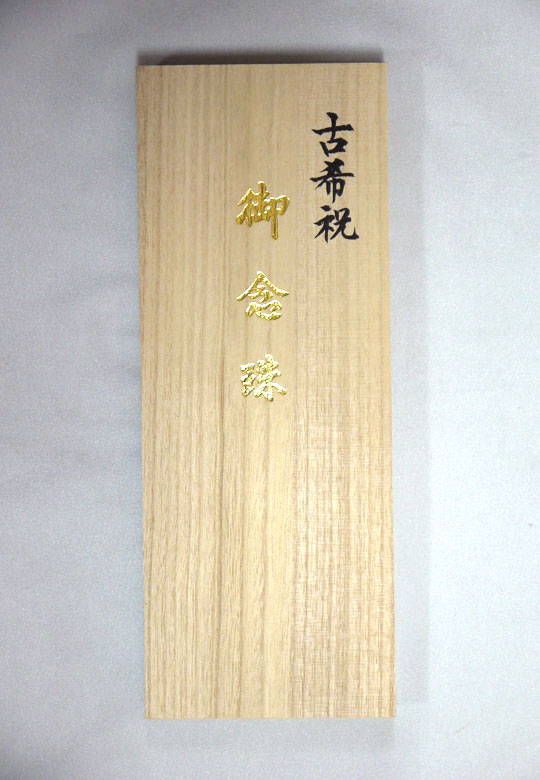 古希祝
御念珠